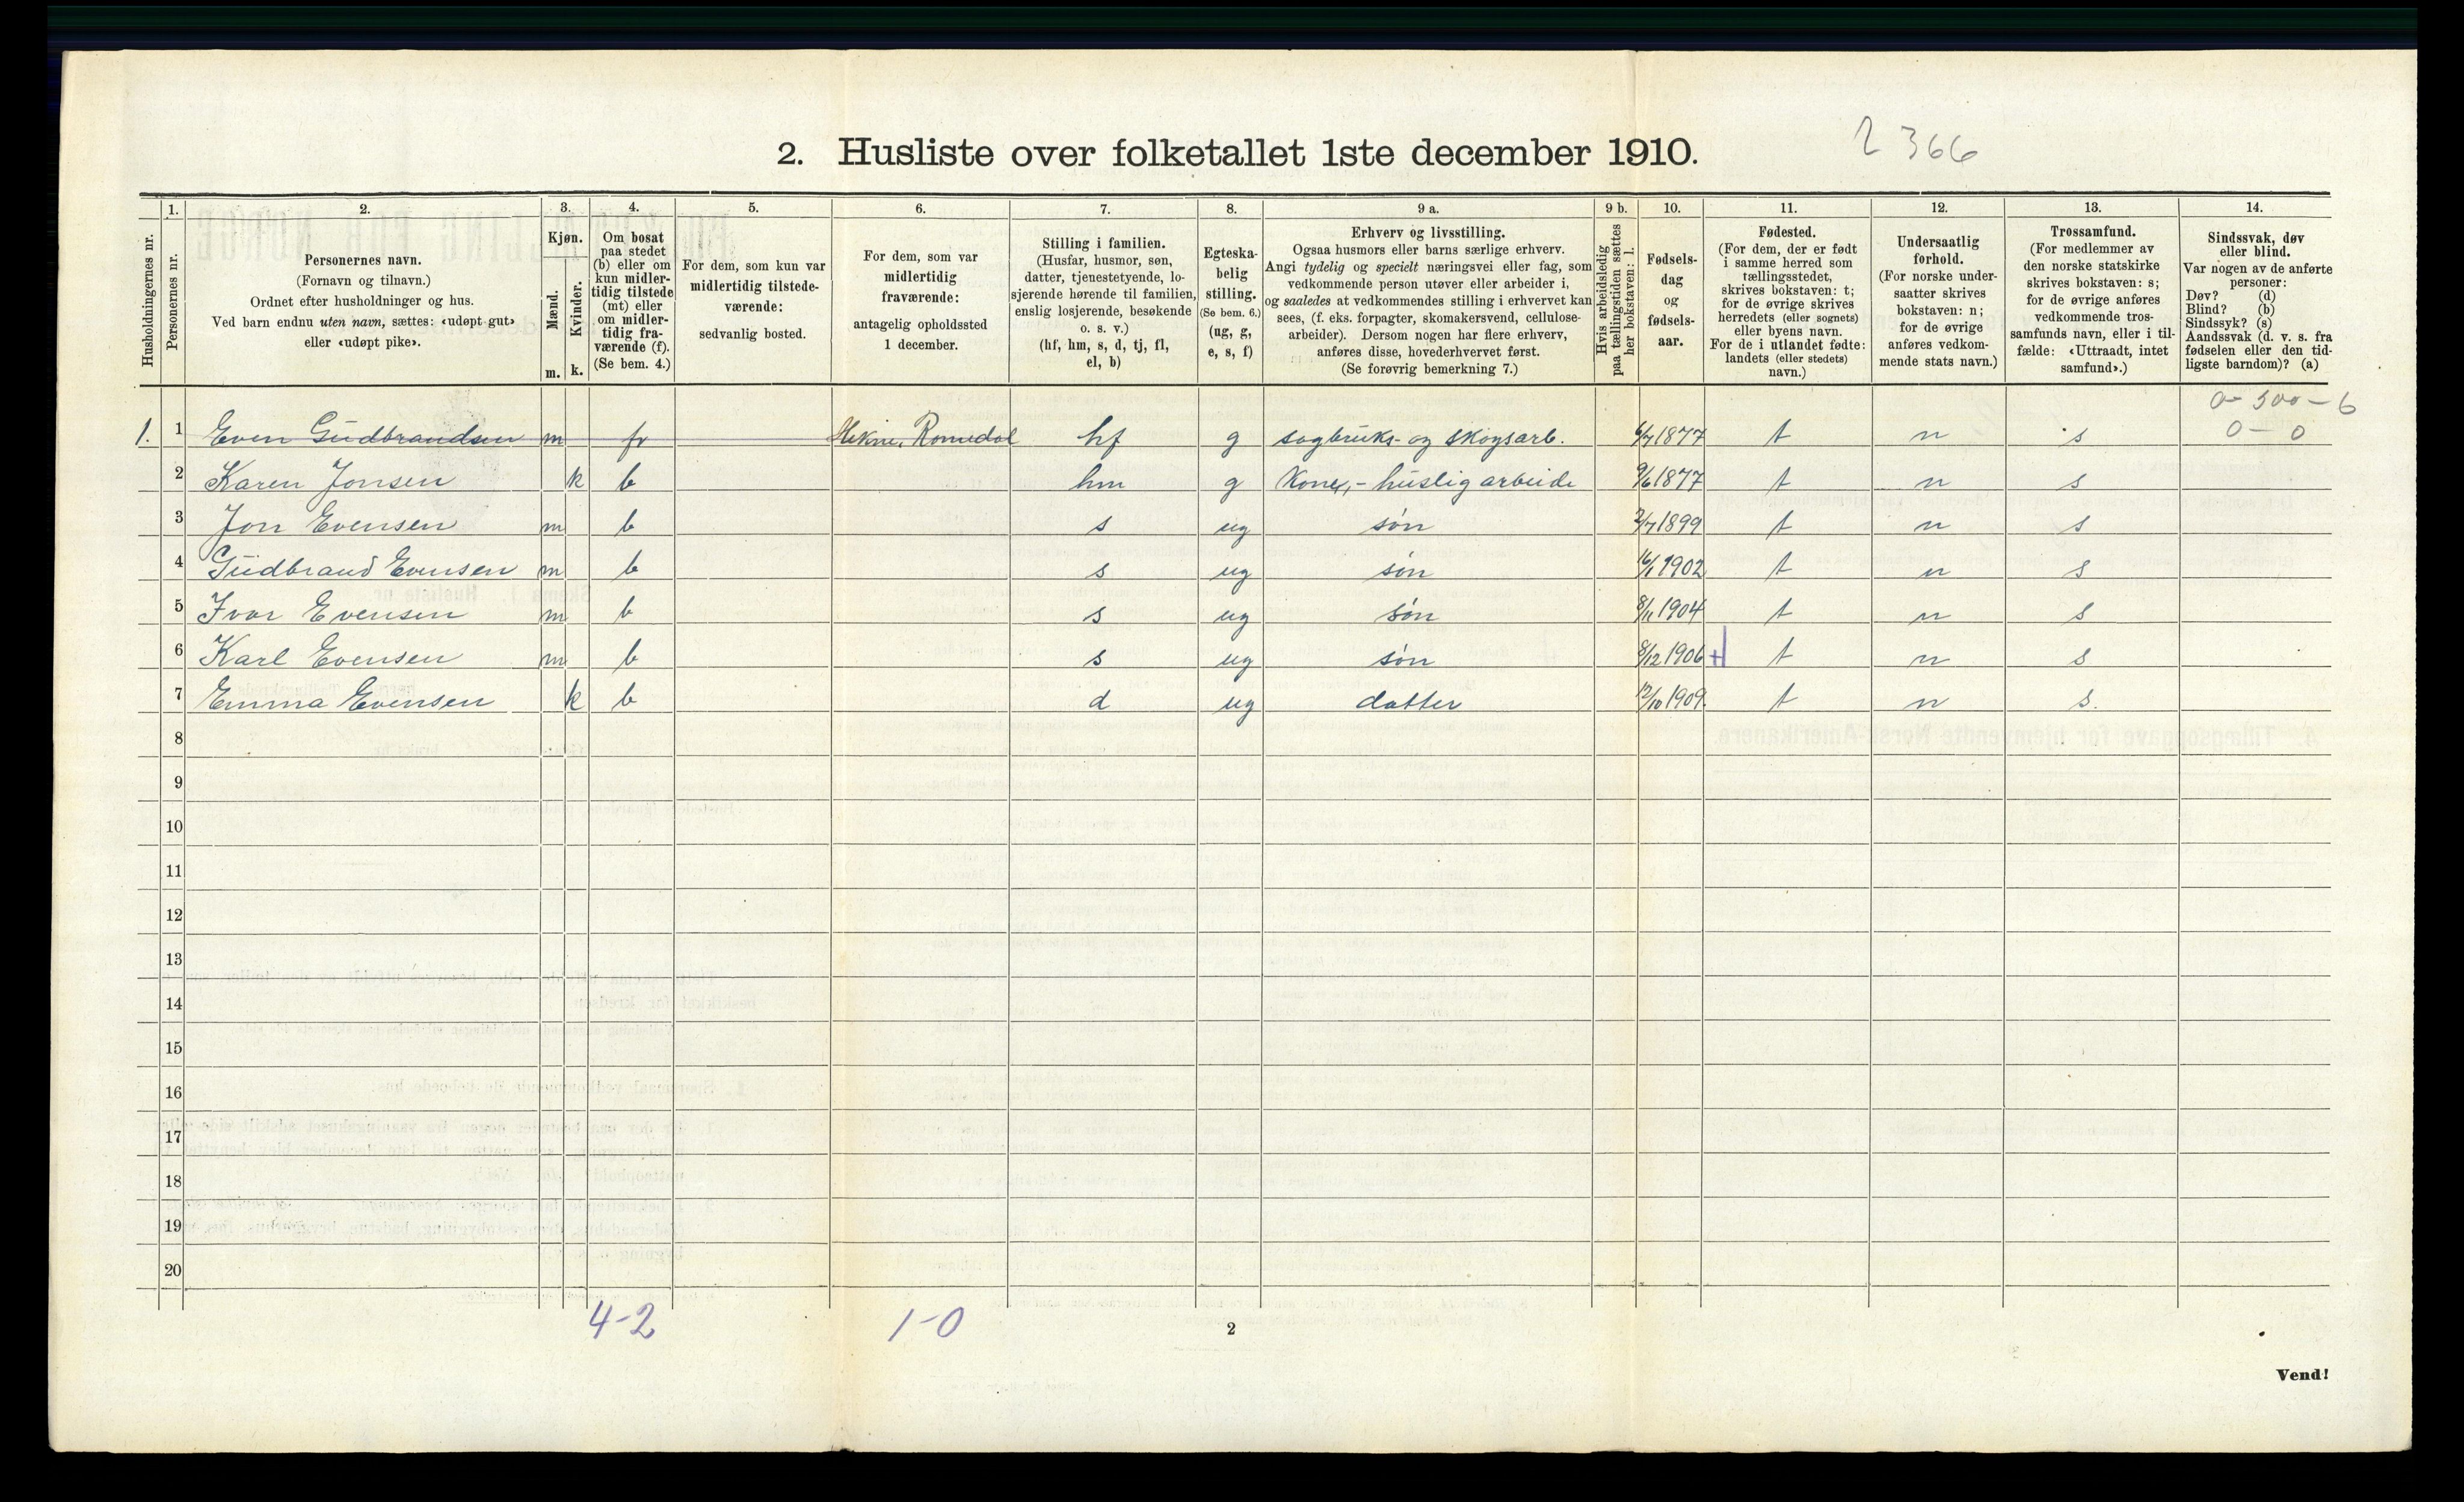 2. Husliste over folketallet 1ste december 1910.
2 366
Husholdningernes nr.
1. Personernes nr.
2. Personernes navn.
(Fornavn og tilnavn.)
Ordnet efter husholdninger og hus.
Ved barn endnu uten navn, sættes: «udøpt gut»
eller «udøpt pike».
3. Kjøn.
Mænd. m.
Kvinder. k.
4. Om bosat
paa stedet
(b) eller om
kun midler-
tidig tilstede
(mt) eller
om midler-
tidig fra-
værende (f).
(Se bem. 4.)
5. For dem, som kun var
midlertidig tilstede-
værende:
sedvanlig bosted.
6. For dem, som var
midlertidig
fraværende:
antagelig opholdssted
1 december.
7. Stilling i familien.
(Husfar, husmor, søn,
datter, tjenestetyende, lo-
sjerende hørende til familien,
enslig losjerende, besøkende
o. s. v.)
(hf, hm, s, d, tj, fl,
el, b)
8. Egteska-
belig
stilling.
(Se bem. 6.)
(ug, g,
e, s, f)
9 a. Erhverv og livsstilling.
Ogsaa husmors eller barns særlige erhverv.
Angi tydelig og specielt næringsvei eller fag, som
vedkommende person utøver eller arbeider i,
og saaledes at vedkommendes stilling i erhvervet kan
sees, (f. eks. forpagter, skomakersvend, cellulose-
arbeider). Dersom nogen har flere erhverv,
anføres disse, hovederhvervet først.
(Se forøvrig bemerkning 7.)
9 b. Hvis arbeidsledig
paa tællingstiden sættes
her bokstaven: l.
10. Fødsels-
dag
og
fødsels-
aar.
11. Fødested.
(For dem, der er født
i samme herred som
tællingsstedet,
skrives bokstaven: t;
for de øvrige skrives
herredets (eller sognets)
eller byens navn.
For de i utlandet fødte:
landets (eller stedets)
navn.)
12. Undersaatlig
forhold.
(For norske under-
saatter skrives
bokstaven: n;
for de øvrige
anføres vedkom-
mende stats navn.)
13. Trossamfund.
(For medlemmer av
den norske statskirke
skrives bokstaven: s;
for de øvrige anføres
vedkommende tros-
samfunds navn, eller i til-
fælde: «Uttraadt, intet
samfund».)
14. Sindssvak, døv
eller blind.
Var nogen av de anførte
personer:
Døv? (d)
Blind? (b)
Sindssyk? (s)
Aandssvak (d. v. s. fra
fødselen eller den tid-
ligste barndom)? (a)
0- 500 - 6
1. 1 Even Gudbrandsen m fr Romedal hf g sagbruks- og skogsarb. 6/7 1877 t n s 0 - 0
2 Karen Jonsen k b hm g Kone,- huslig arbeide 9/6 1877 t n s
3 Jon Evensen m b s ug søn 2/7 1899 t n s
4 Gudbrand Evensen m b s ug søn 16/1 1902 t n s
5 Ivar Evensen m b s ug søn 8/11 1904 t n s
6 Karl Evensen m b s ug søn 8/12 1906 t n s
7 Emma Evensen k b d ug datter 12/10 1909. t n s.
8
9
10
11
12
13
14
15
16
17
18
19
20
4-2 1-0
2
Vend!